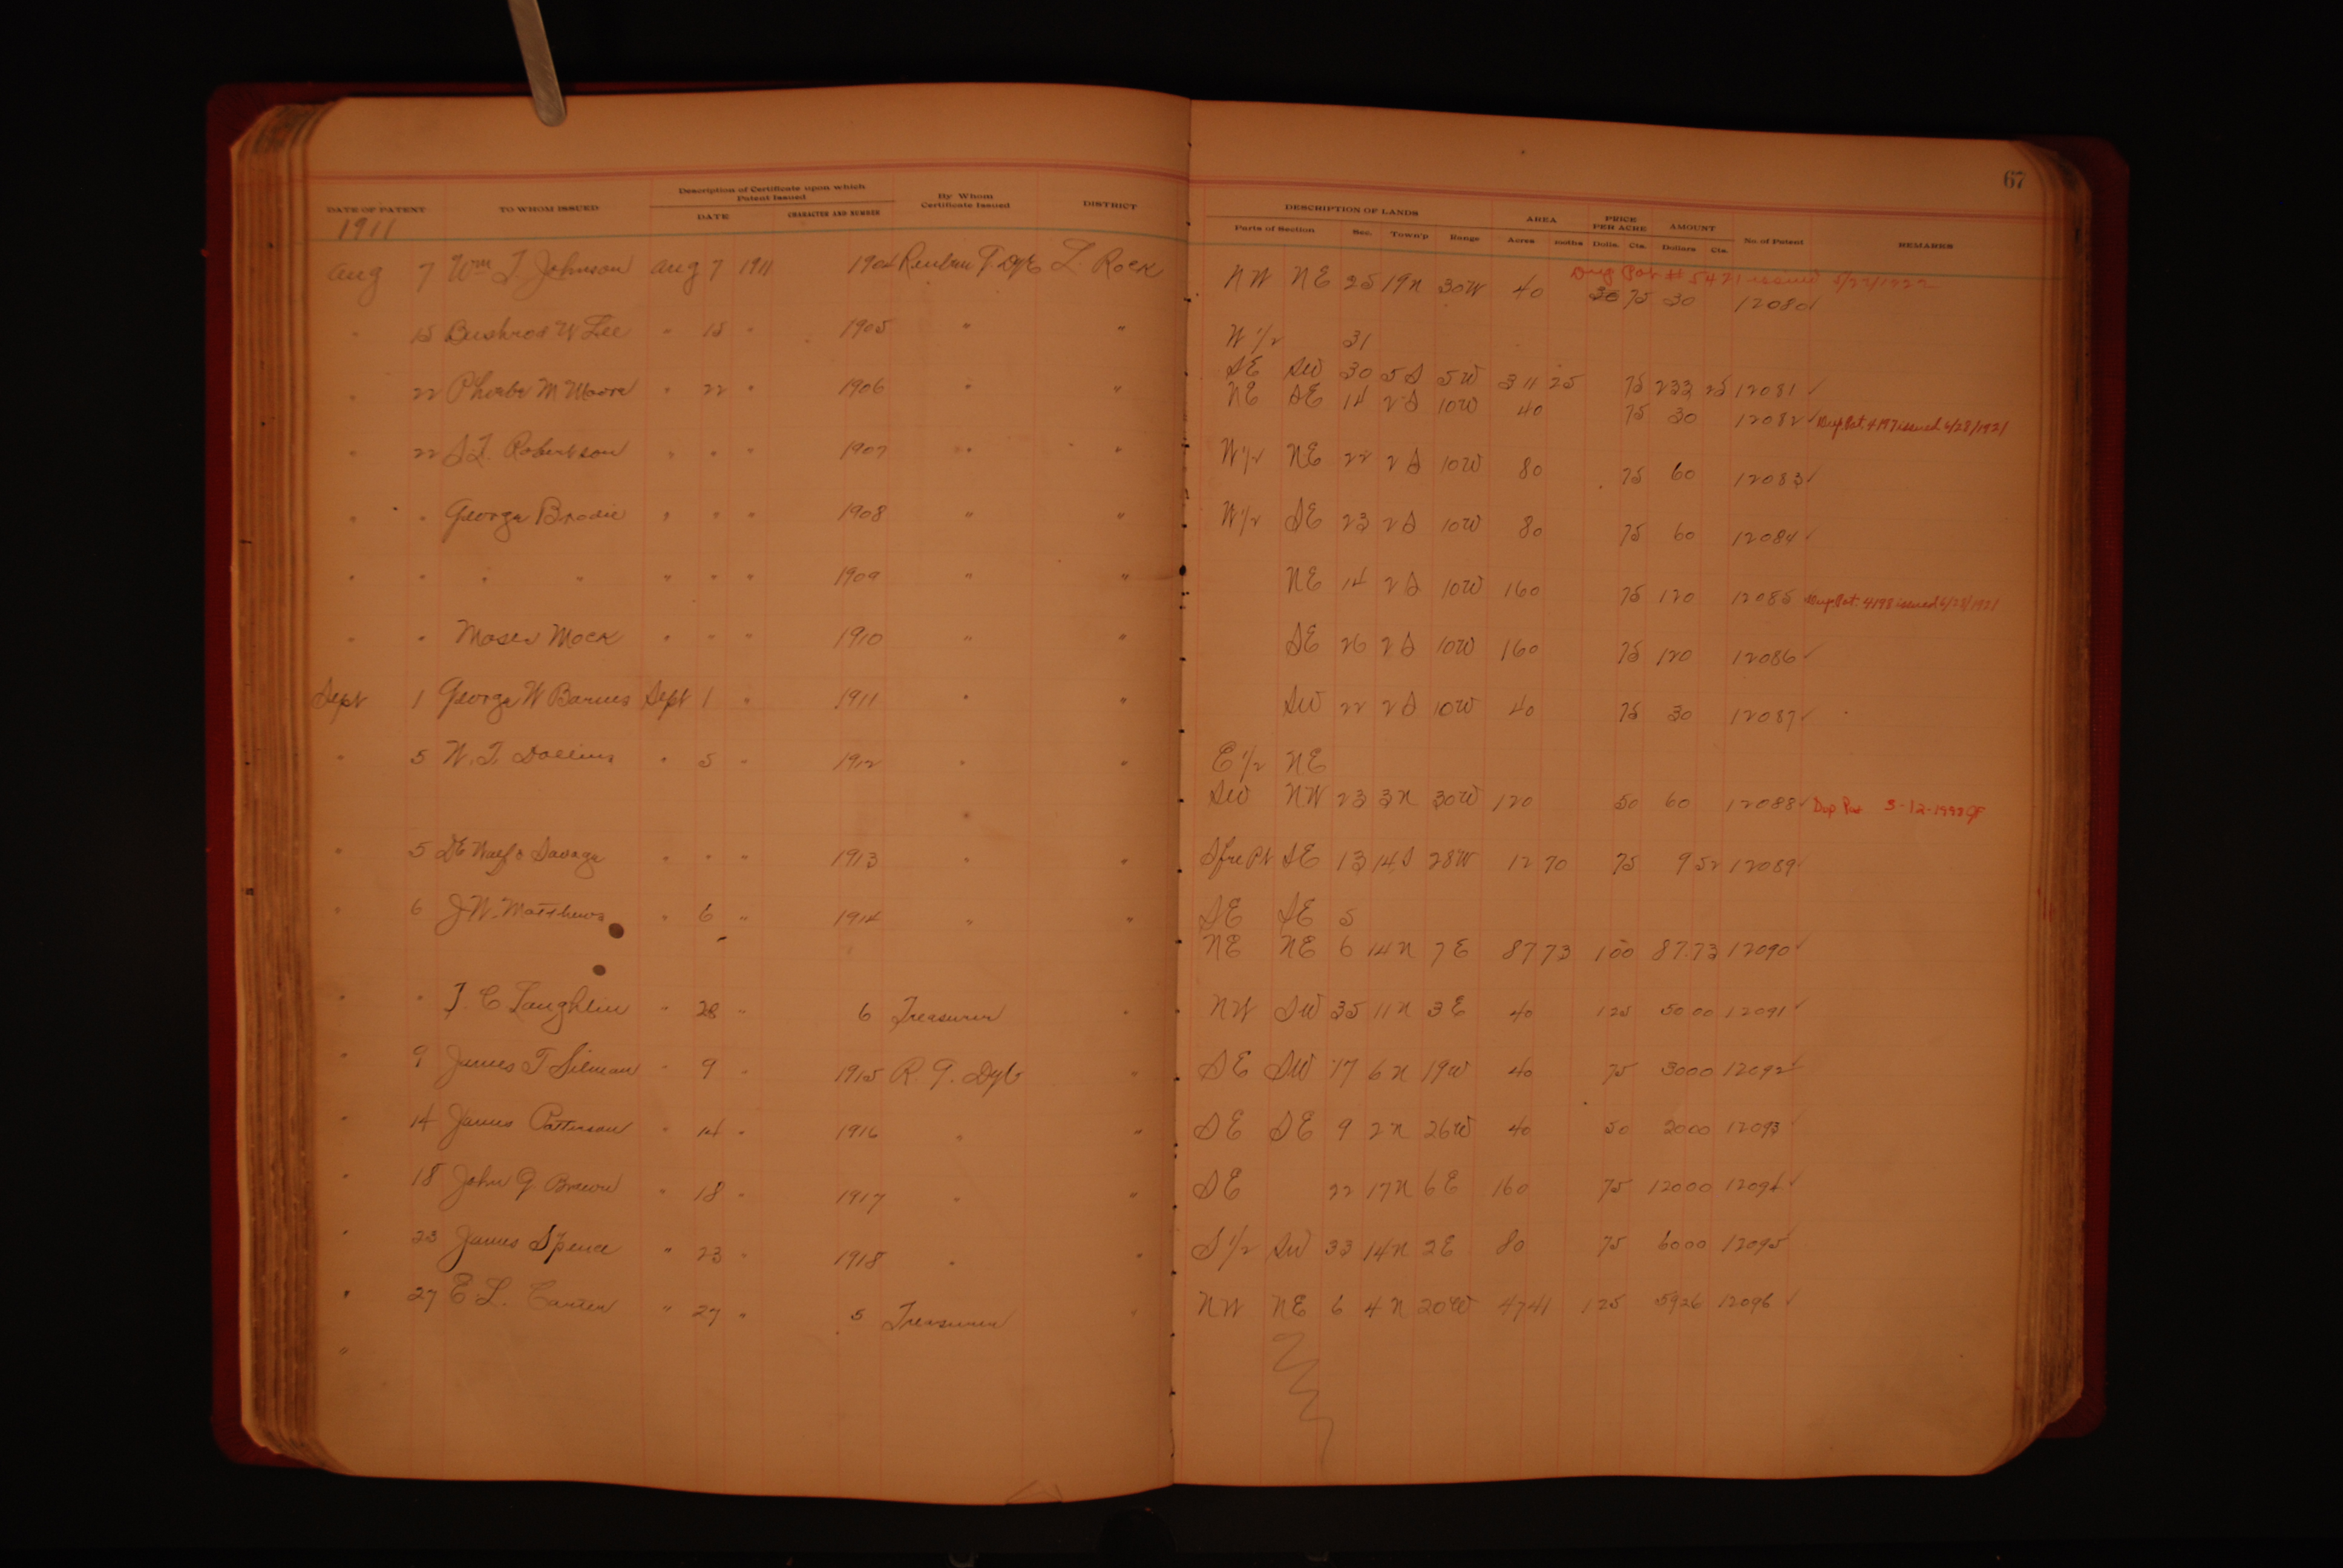 67
DATE OF PATENT TO WHOM ISSUED Description of Certificate upon which Patent Issued DATE CHARACTER AND NUMBER By Whom Certificate Issued DISTRICT DESCRIPTION OF LANDS Parts of Section Sec. Town'p Range AREA Acres PRICE PER ACRE Dolls. Cts. AMOUNT Dollars Cts. No. of Patent REMARKS
1911
Dup Pat # 5421 issued
Aug 7 Wm T. Johnson Aug 7 1911 1904 Reuben G. Dye L. Rock NW NE 25 19N 30W 40 75 30 12080
" 15 Bushrod W Lee " 15 " 1905 " " W 1/2 31
SE SW 30 5S 5W 311 25 75 233 25 12081 ✓
" 22 Phoebe M Moore " 22 " 1906 " " NE SE 14 2S 10W 40 75 30 12082 ✓ Dup. Pat. 4197 issued 6/28/1921
" 22 Robertson " " " 1907 " " W 1/2 NE 22 2S 10W 80 75 60 12083 ✓
" " George Brodie " " " 1908 " " W 1/2 SE 23 2S 10W 80 75 60 12084 ✓
" " " " " " " 1909 " " NE 14 2S 10W 160 75 120 12085 Dup. Pat. 4198 issued 6/28/1921
" " Moses Mock " " " 1910 " " SE 26 2S 10W 160 75 120 12086 ✓
Sept 1 George W Barnes Sept 1 " 1911 " " SW 22 2S 10W 40 75 30 12087 ✓
" 5 W. T. " 5 " 1912 " " E 1/2 NE
SW NW 23 3N 30W 120 50 60 12088 ✓ Dup Pat
" 5 Savage " " " 1913 " " SE 13 14S 28W 12 70 75 9 52 12089
" 6 J W. Matthews " 6 " 1914 " " SE SE 5
NE NE 6 14N 7E 87 73 100 87.73 12090 ✓
" " J. C Laughlin " 28 " 6 Treasurer " NW SW 35 11N 3E 40 125 50 00 12091 ✓
" 9 James T Silman " 9 " 1915 R. G. Dye " SE SW 17 6N 19W 40 75 3000 12092 ✓
" 14 James Patterson " 14 " 1916 " " SE SE 9 2N 26W 40 50 2000 12093 ✓
" 18 John G Brown " 18 " 1917 " " SE 22 17N 6E 160 75 12000 12094 ✓
" 23 James Spence " 23 " 1918 " " S 1/2 SW 33 14N 2E 80 75 6000 12095 ✓
" 27 E. L. Carter " 27 " 5 Treasurer " NW NE 6 4N 20W 47 41 125 5926 12096 ✓
"